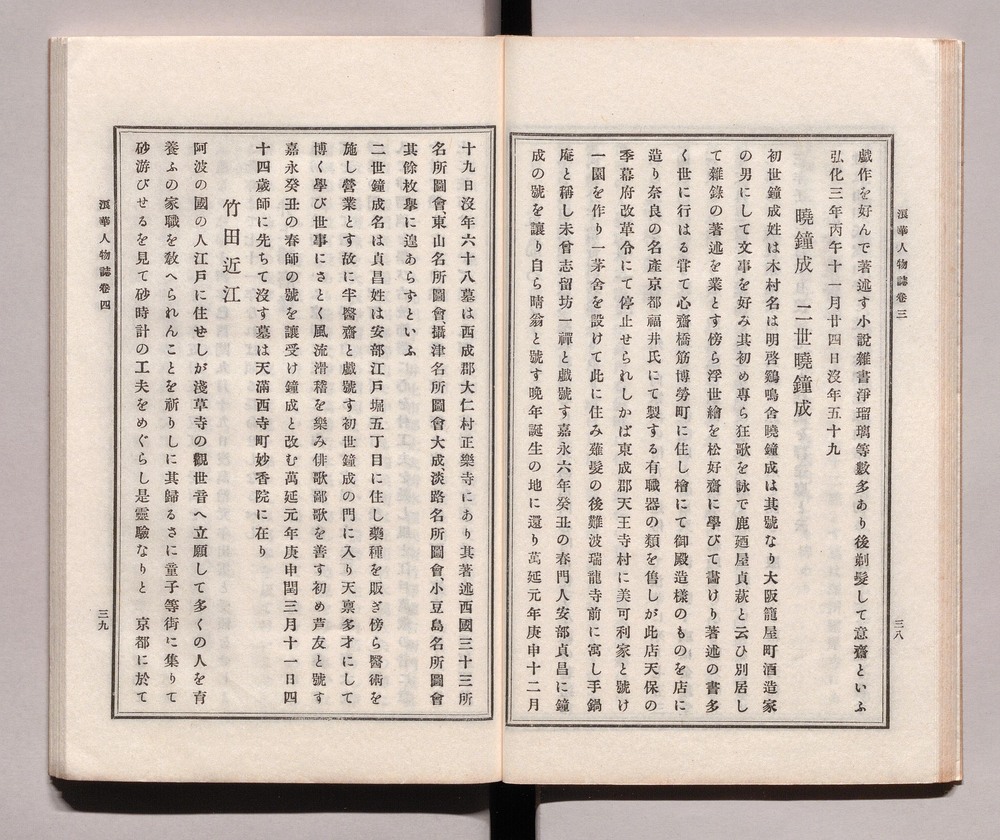 浪華人物誌卷三
三八
戲作を好んで著述す小說雜書淨瑠璃等數多あり後剃髮して意齋といふ
弘化三年丙午十一月廿四日沒年五十九
曉鐘成　二世曉鐘成
初世鐘成姓は木村名は明啓鷄鳴舍曉鐘成は其號なり大阪籠屋町酒造家
の男にして文事を好み其初め專ら狂歌を詠で鹿廼屋貞萩と云ひ別居し
て雜錄の著述を業とす傍ら浮世繪を松好齋に學びて畵けり著述の書多
く世に行はる甞て心齋橋筋博勞町に住し檜にて御殿造樣のものを店に
造り奈良の名產京都福井氏にて製する有職器の類を售しが此店天保の
季幕府改革令にて停止せられしかば東成郡天王寺村に美可利家と號け
一園を作り一茅舍を設けて此に住み薙髮の後難波瑞龍寺前に寓し手鍋
庵と稱し未曾志留坊一禪と戲號す嘉永六年癸丑の春門人安部貞昌に鐘
成の號を讓り自ら晴翁と號す晚年誕生の地に還り萬延元年庚申十二月
十九日沒年六十八墓は西成郡大仁村正樂寺にあり其著述西國三十三所
名所圖會、東山名所圖會、攝津名所圖會大成淡路名所圖會、小豆島名所圖會
其餘枚擧に遑あらずといふ
二世鐘成名は貞昌姓は安部江戶堀五丁目に住し藥種を販ぎ傍ら醫術を
施し營業とす故に半醫齋と戲號す初世鐘成の門に入り天稟多才にして
博く學び世事にさとく風流滑稽を樂み俳歌鄙歌を善す初め芦友と號す
嘉永癸丑の春師の號を讓受け鐘成と改む萬延元年庚申閏三月十一日四
十四歲師に先ちて沒す墓は天滿西寺町妙香院に在り
竹田近江
阿波の國の人江戶に住せしが淺草寺の觀世音へ立願して多くの人を育
養ふの家職を敎へられんことを祈りしに其歸るさに童子等街に集りて
砂游びせるを見て砂時計の工夫をめぐらし是靈驗なりと　京都に於て
浪華人物誌卷四
三九